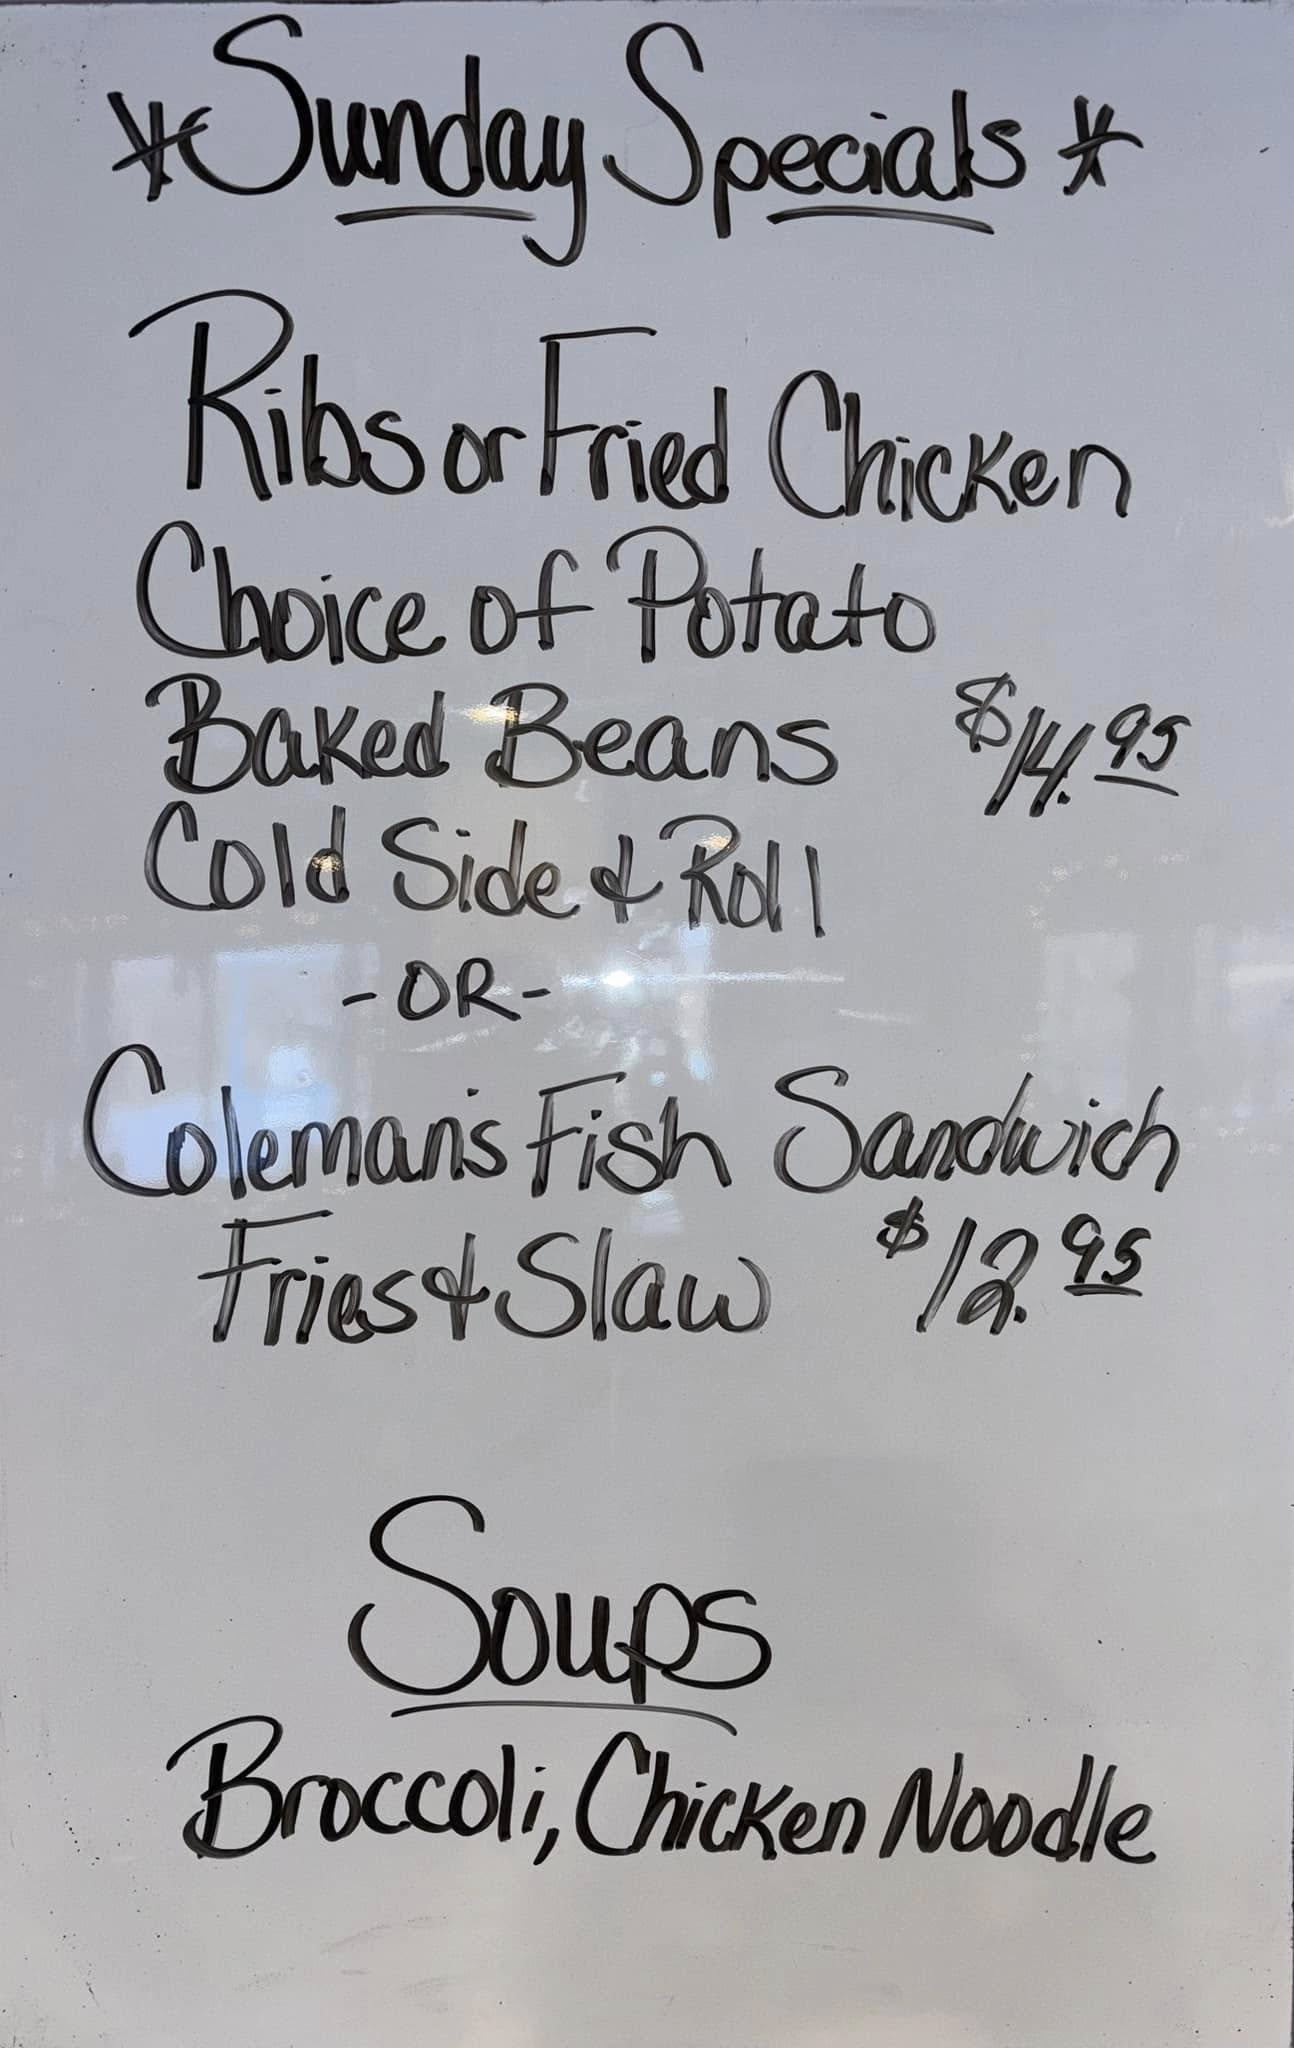 *Sunday Specials*
Ribs or Fried Chicken
Choice of Potato
Baked Beans $14.95
Cold Side & Roll
-OR-
Coleman's Fish Sandwich
Fries & Slaw $12.95
Soups
Broccoli, Chicken Noodle